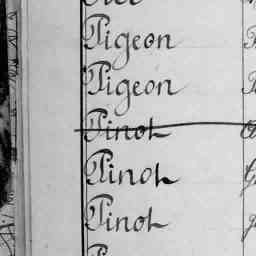 Pigeon
Pigeon
Pinot
Pinot
Pinot